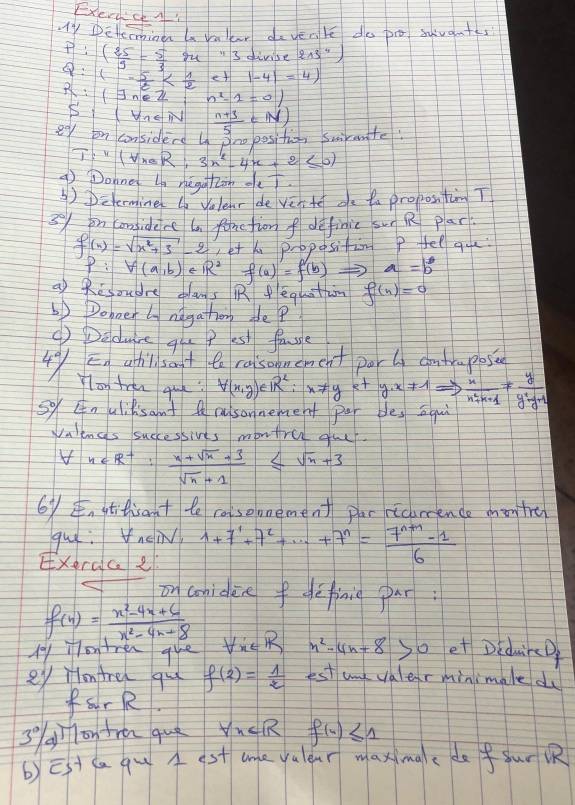 Exercice 1:
1°/ Déterminer la valeur de vérité des pro. suivantes:
P: ( 25/9 = 5/3 ou "3 divise 213" )
Q: ( -5/2 < 1/2 et |-4| = 4 )
R: ( ∃n∈Z ; n²-1=0 )
S: ( ∀n∈ℕ (n+3)/5 ∈ ℕ )
2°/ on considère la proposition suivante:
T: " (∀x∈ℝ, 3x²-4x+2 ≤ 0)
a) Donner la négation de T.
b) Déterminer la valeur de vérité de la proposition T.
3°/ on considère la fonction f définie sur ℝ par:
f(x) = √(x²+3) - 2, et la proposition P tel que:
P: ∀(a,b)∈ℝ² f(a)=f(b) ⟹ a=b
a) Résoudre dans ℝ l'équation f(x)=0
b) Donner la négation de P.
c) Déduire que P est fausse.
4°/ En utilisant le raisonnement par la contraposée
Montrer que: ∀(x,y)∈ℝ²: x≠y et y.x≠1 ⟹ x/(x²+x+1) ≠ y/(y²+y+1)
5°/ En utilisant le raisonnement par des équi
valences successives montrer que:
∀x∈ℝ⁺ : (x+√x+3)/(√x+1) ≤ √x+3
6°/ En utilisant le raisonnement par récurrence montrer
que: ∀n∈ℕ, 1+7¹+7²+...+7ⁿ = (7ⁿ⁺¹-1)/6
Exercice 2:
on conidère f définie par :
f(x) = (x²-4x+6)/(x²-4x+8)
1°/ Montrer que ∀x∈ℝ x²-4x+8 >0 et Déduire Df
2°/ Montrer que f(2)=1/2 est une valeur minimale de
f sur ℝ.
3°/a) Montrer que ∀x∈ℝ f(x) ≤ 1
b) Est ce que 1 est une valeur maximale de f sur ℝ